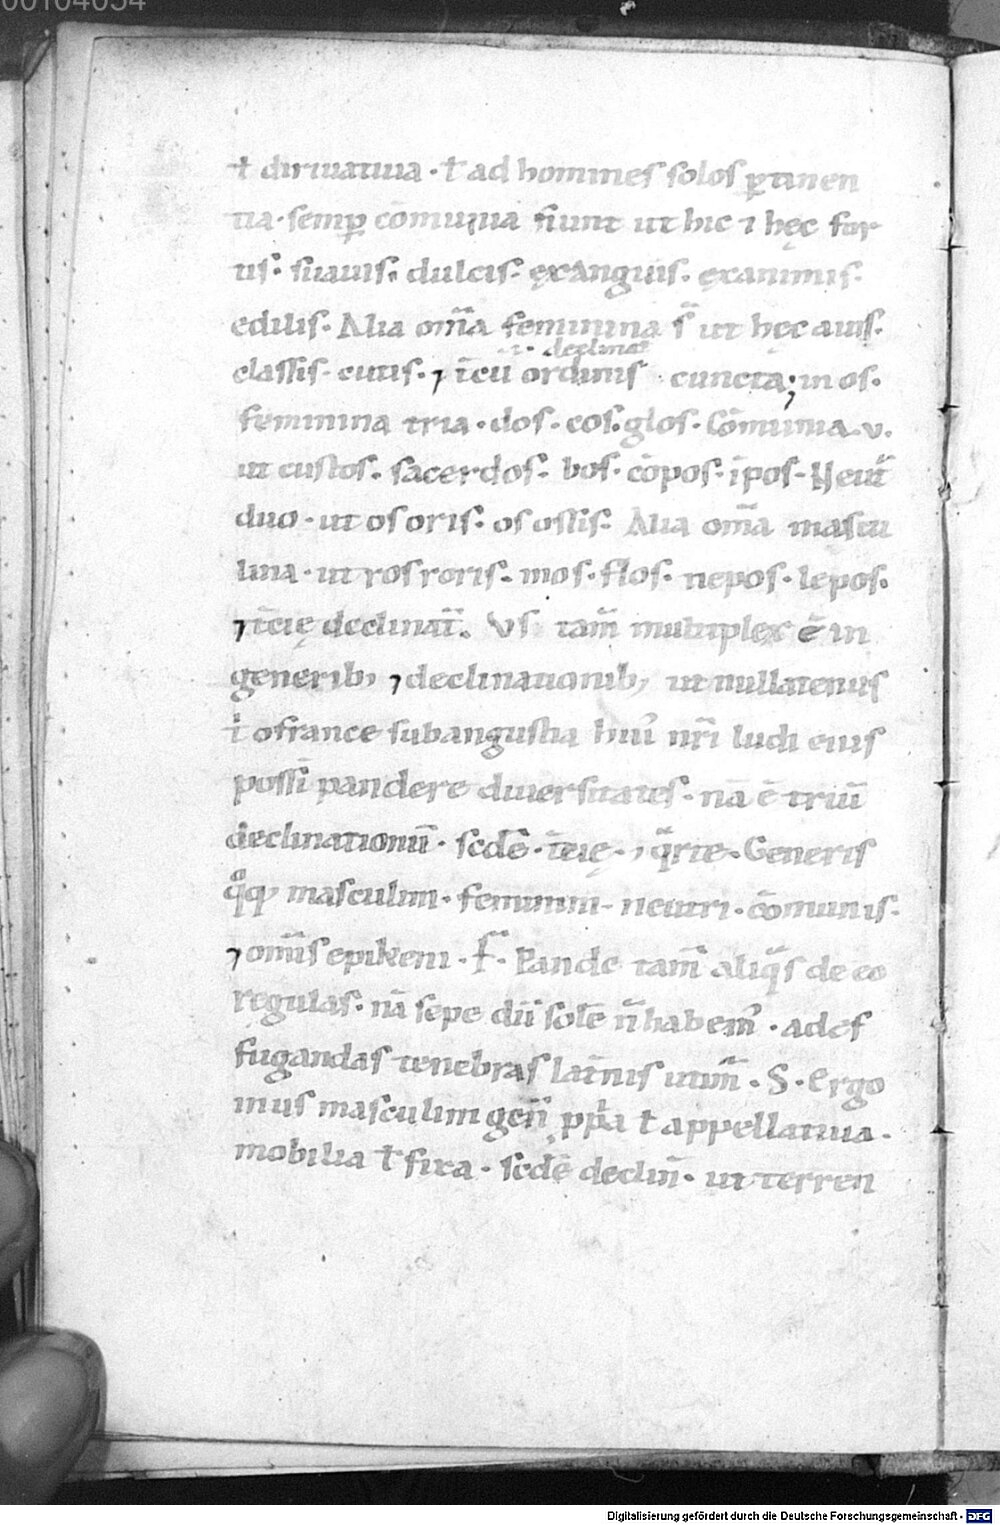 00104054
ł diriuatiua · ł ad homines solos ꝑtinen
tia · semꝑ cōmunia fiunt ut hic ⁊ hęc for
tis · suauis · dulcis · ęxanguis · ęxanimis ·
edilis · Alia om̄ia feminina s̄ ut hęc auis ·
·i· declinat̄
classis · cutis · ⁊ t̄cii ordinis cuncta ; in os ·
feminina tria · dos · cos · glos · Cōmunia · v ·
ut custos · sacerdos · bos · cōpos · īpos · Neut̄
duo · ut os oris · os ossis · Alia om̄a mascu
lina · ut ros roris · mos · flos · nepos · lepos ·
⁊ t̄cię declinat̄ · VS tam̄ multiplex ē in
generib; ⁊ declinationib; ut nullatenus
i ofrance subangustia huī nr̄i ludi eius
possī pandere diuersitates · nā ē triū
declinationū · scd̄e · t̄cię · ⁊ q̄rte · Generis
qͦq; masculini · feminini · neutri · cōmunis ·
⁊ om̄is epikeni · F̄ · Pande tam̄ aliq̄s de eo
regulas · nā sepe dū solē n̄ habem᷒ · ad ef
fugandas tenebras lat̄nis utim̄ · S · Ergo
in us masculini gen̄ ꝓpͥa ł appellatiua ·
mobilia ł fixa · scd̄e declin̄ · ut terren
Digitalisierung gefördert durch die Deutsche Forschungsgemeinschaft - DFG